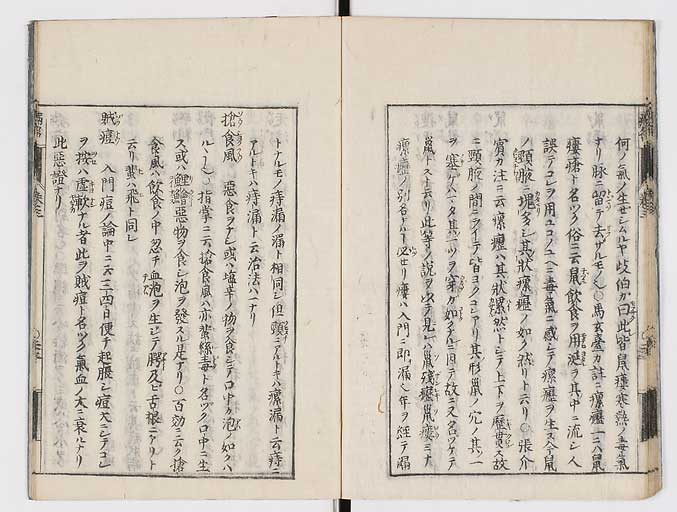 何ノ氣ノ生セシムルヤ岐伯カ曰此皆鼠瘻寒熱ノ毒氣
ナリ脉ニ留テ去サルモノ也○馬玄臺カ註ニ瘰癧一ニハ鼠
瘻瘡ト名ツク俗ニ云鼠飲食ヲ用涎ヲ其中ニ流シ人
誤テコレヲ用ユコノユヘニ毒氣ニ感シテ瘰癧ヲ生ス今鼠
ノ頸腋ニ塊多シ其状瘰癧ノ如ク然リト云リ○張介
賓カ注ニ云瘰癧ハ其状累然トシテ上下ヲ歴貫ス故
ニ頸腋ノ間ニライテ皆ヨクコレアリ其形鼠ノ穴ノ其一
ヲ塞テハ又其一ツヲ穿カ如キ故ニ又名ツケテ
鼠トスト云リ此等ノ説ヲ以テ見レハ鼠殘癧鼠瘻ミナ
瘰癧ノ別名ナルヿ必セリ瘻ハ入門ニ即漏也年ヲ經テ漏
トナルモノ痔漏ノ漏ト相同シ但頸ニアルトキハ瘰漏ト云痔ニ
アルトキハ痔漏ト云治法ハ一ナリ
搶食風 惡食ヲナシ或ハ塩辛ノ物ヲ食シテ口中カ泡ノ如クハ
ルヽ也○指掌ニ云搶食風ハ亦蜚絲毒ト名ツク口中ニ生
ス或ハ鯉鱠惡物ヲ食シ泡ヲ發スル是ナリ○百効ニ云ク搶
食風ハ飲食ノ中忽チ血泡ヲ生シテ腭及ヒ舌根ニアリト
云リ蜚ハ飛ト同シ
賊痘 入門痘ノ論中ニ云三四日便チ起脹シ痘大ニシテコレ
ヲ按ハ虚軟ナル者此ヲ賊痘ト名ツク氣血ノ大ニ衰ルナリ
此惡證ナリ